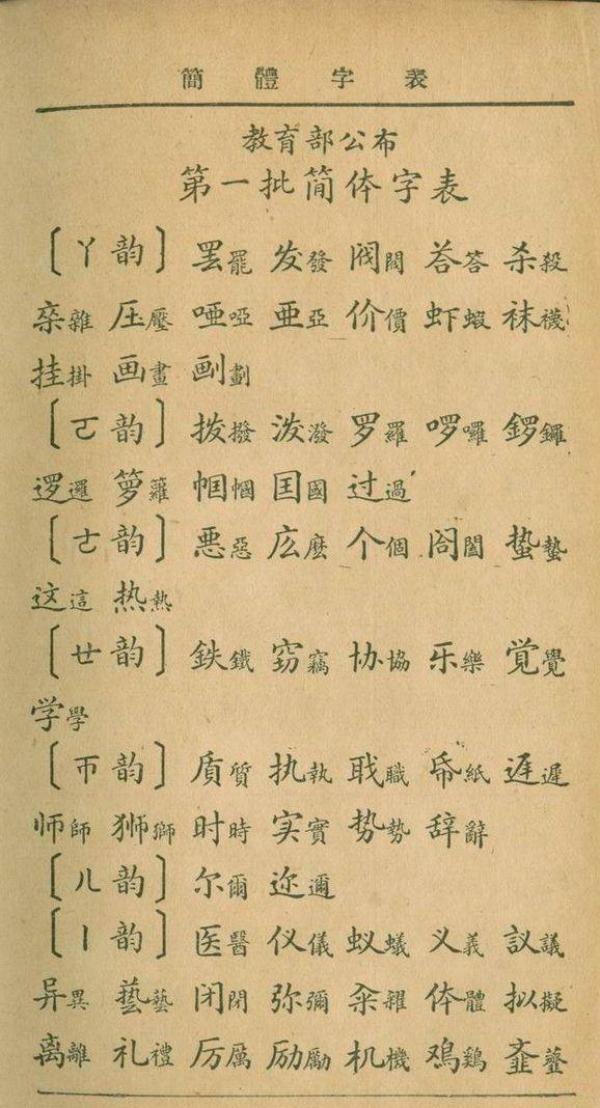 簡體字表
教育部公布
第一批简体字表
〔ㄚ韵〕 罢罷 发發 阀閥 荅答 杀殺
杂雜 压壓 哑啞 亚亞 价價 虾蝦 袜襪
挂掛 画畫 㓰劃
〔ㄛ韵〕 拨撥 泼潑 罗羅 啰囉 锣鑼
逻邏 箩籮 帼幗 囯國 过過
〔ㄜ韵〕 恶惡 庅麼 个個 閤闔 蛰蟄
这這 热熱
〔ㄝ韵〕 鉄鐵 窃竊 协協 乐樂 覚覺
学學
〔ㄭ韵〕 质質 执執 職 帋紙 遅遲
师師 狮獅 时時 实實 势勢 辞辭
〔ㄦ韵〕 尔爾 迩邇
〔ㄧ韵〕 医醫 仪儀 蚁蟻 义義 议議
异異 蓺藝 闭閉 弥彌 籴糴 体體 拟擬
离離 礼禮 厉厲 励勵 机機 鸡鷄 齑虀